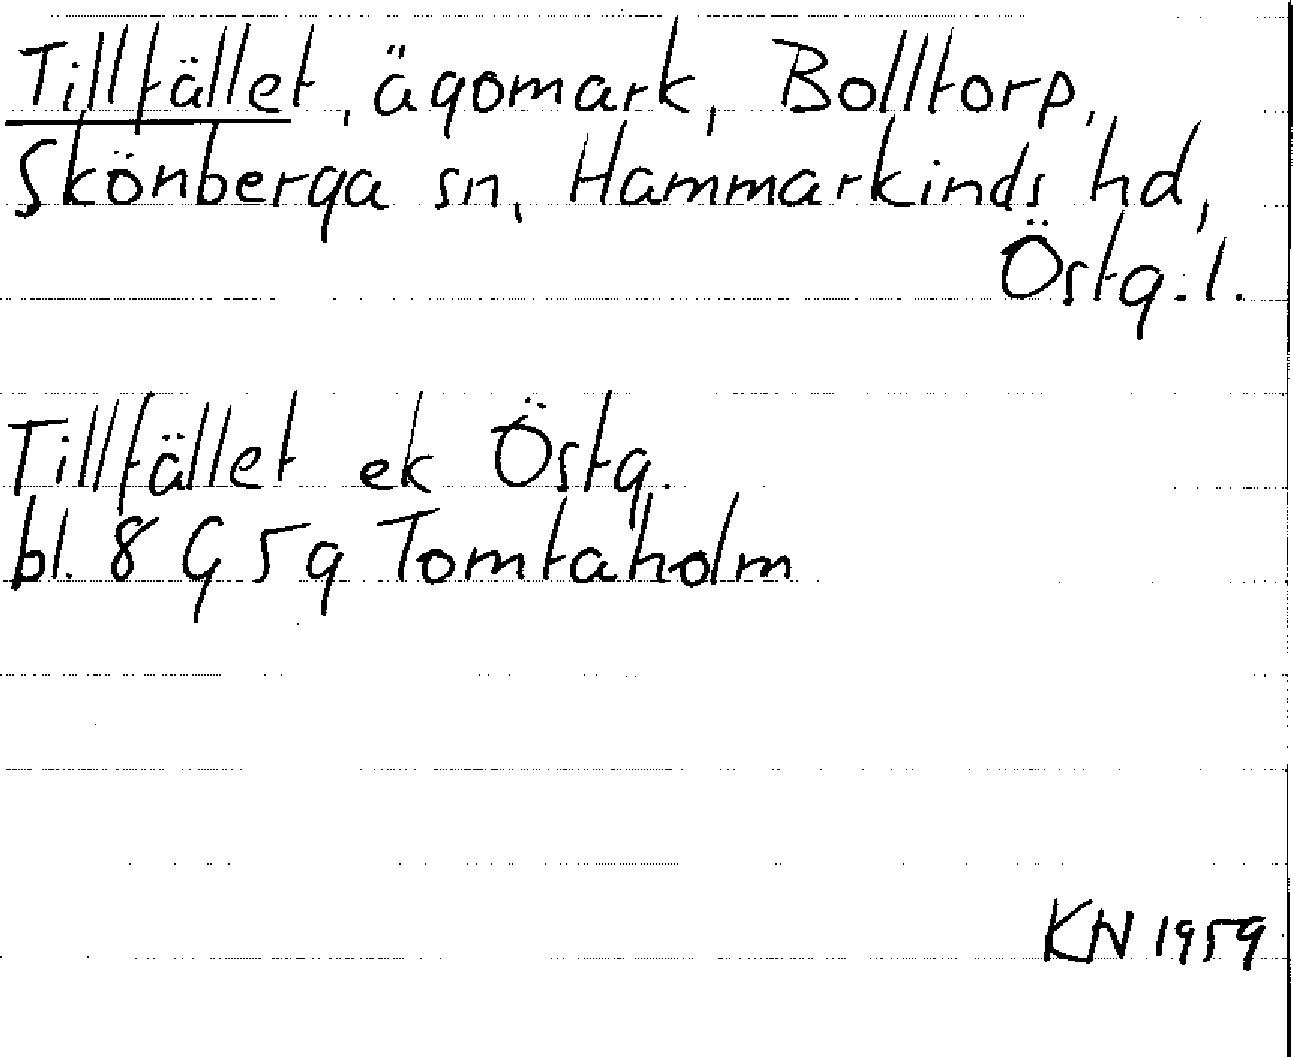 Tillfället, ägomark, Bolltorp,
Skönberga sn, Hammarkinds hd,
Östg.l.
Tillfället ek Östg.
bl. 8 G 5g Tomtaholm
KN 1959